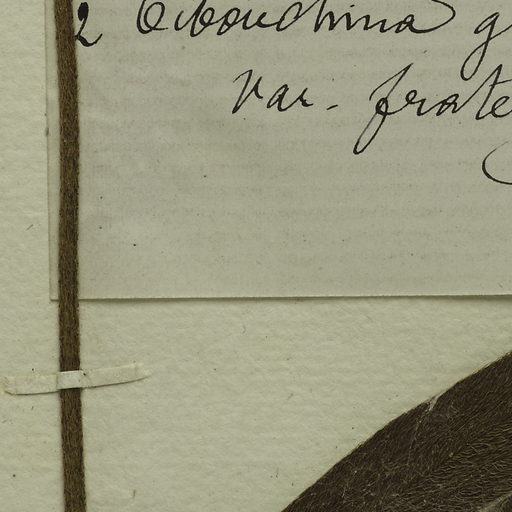 2 Tibouchina g
var. frate